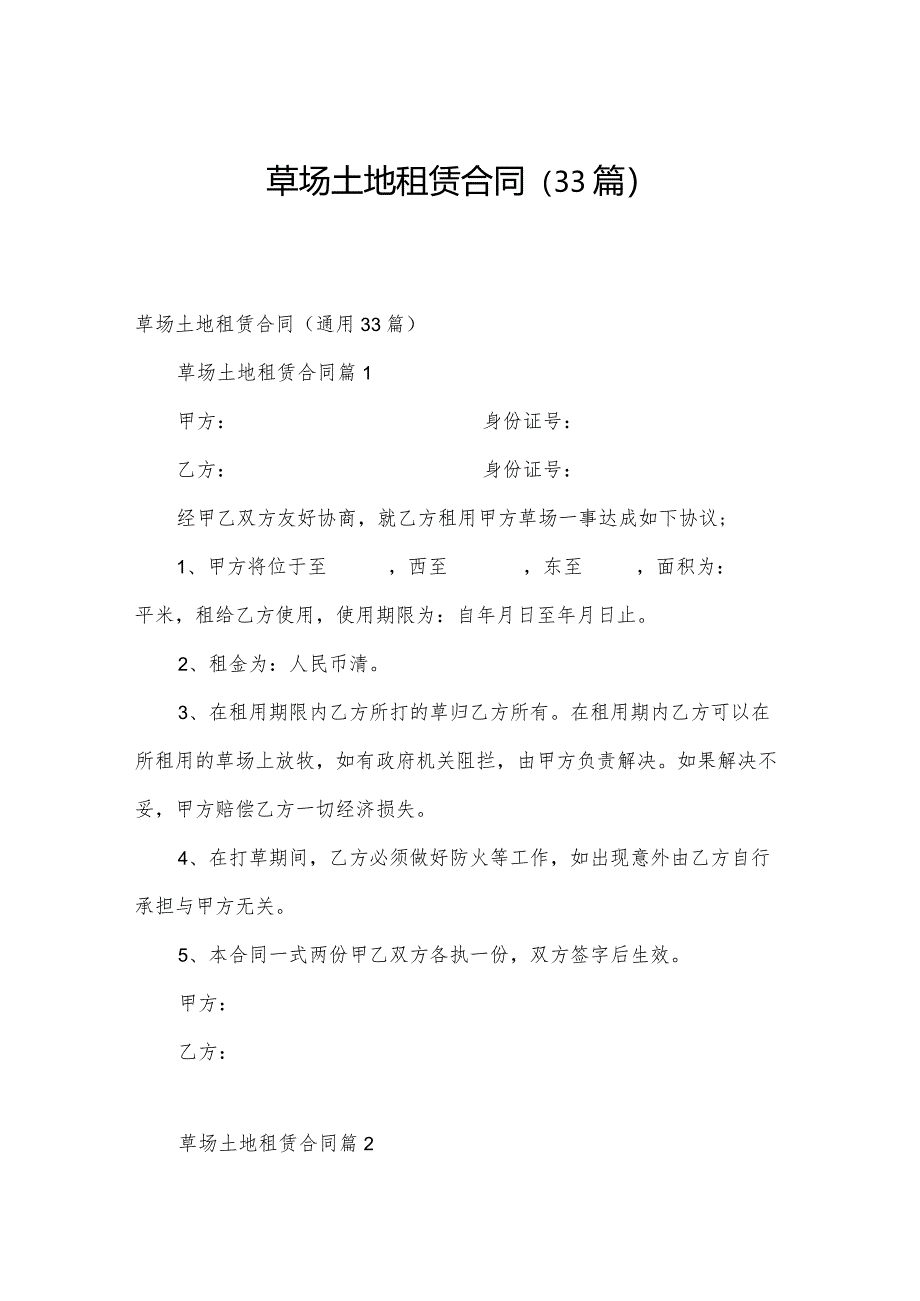 草场土地租赁合同（33篇）
草场土地租赁合同（通用33篇）
草场土地租赁合同篇1
甲方： 身份证号：
乙方： 身份证号：
经甲乙双方友好协商，就乙方租用甲方草场一事达成如下协议；
1、甲方将位于至 ，西至 ，东至 ，面积为：
平米，租给乙方使用，使用期限为：自年月日至年月日止。
2、租金为：人民币清。
3、在租用期限内乙方所打的草归乙方所有。在租用期内乙方可以在
所租用的草场上放牧，如有政府机关阻拦，由甲方负责解决。如果解决不
妥，甲方赔偿乙方一切经济损失。
4、在打草期间，乙方必须做好防火等工作，如出现意外由乙方自行
承担与甲方无关。
5、本合同一式两份甲乙双方各执一份，双方签字后生效。
甲方：
乙方：
草场土地租赁合同篇2